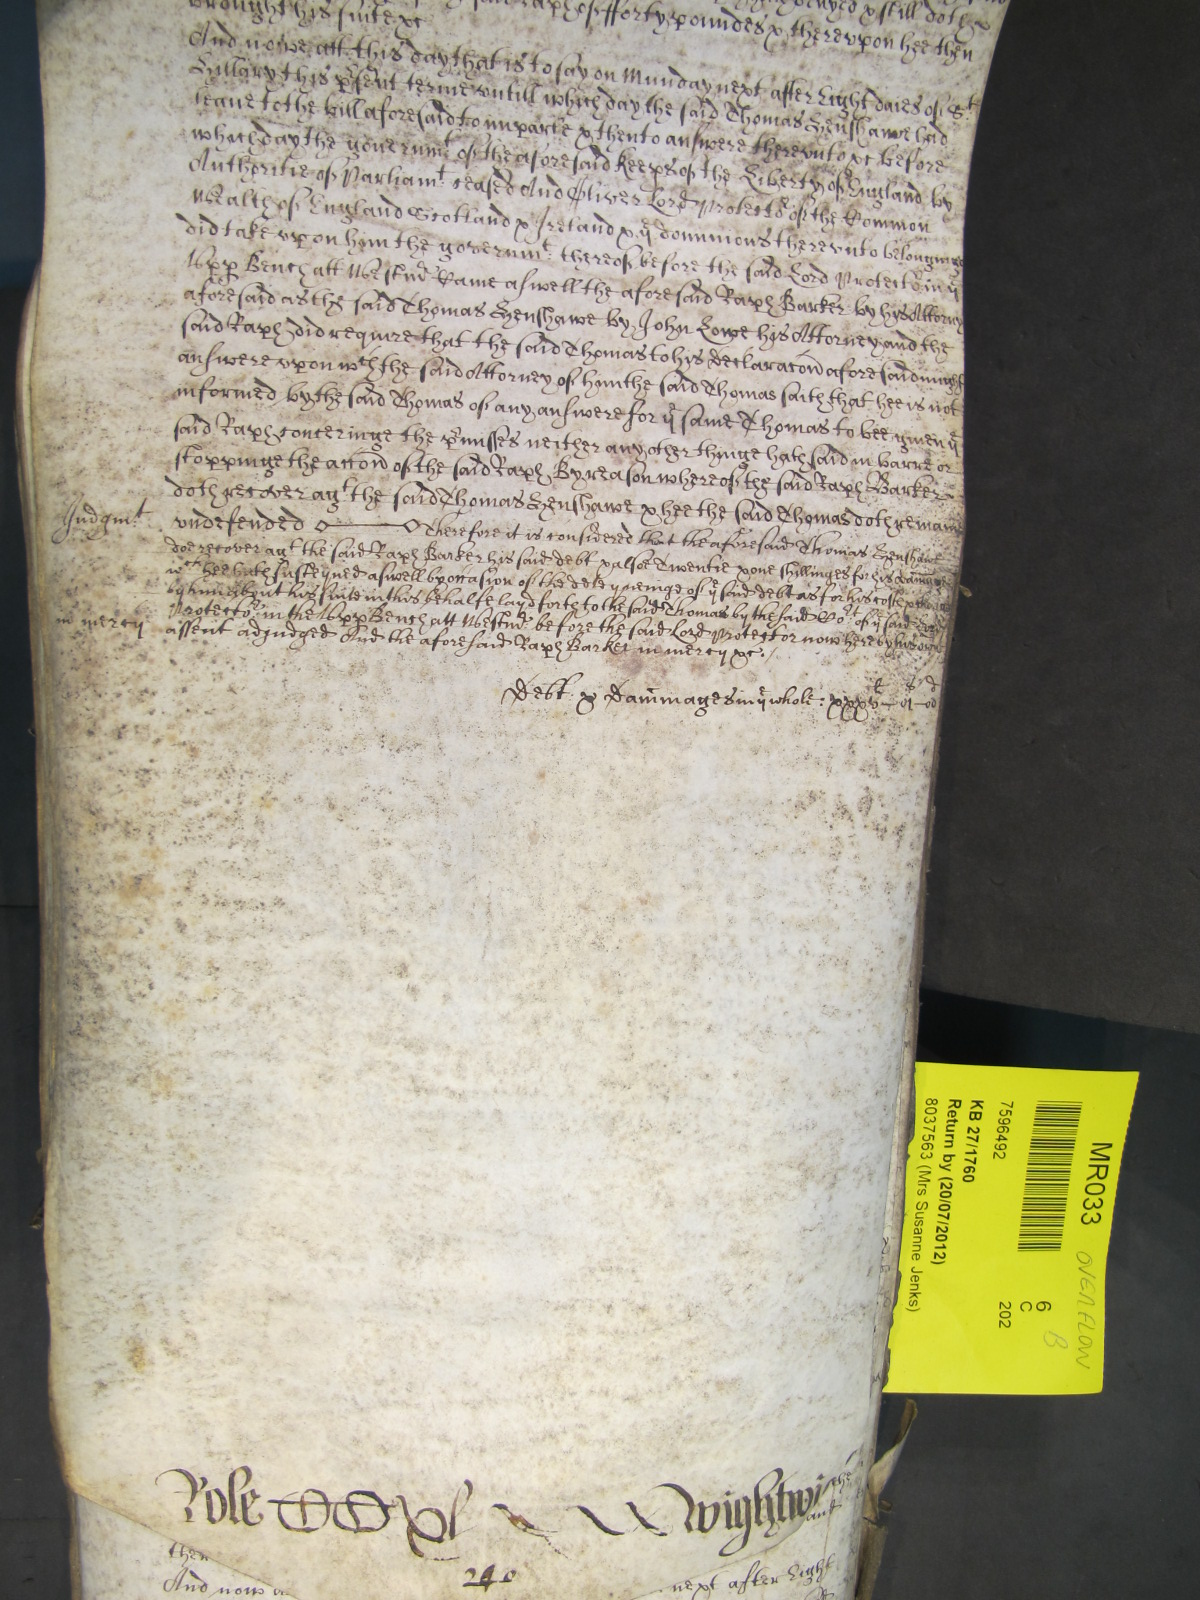 brought his suite &c
said Raph of fforty poundes & therevpon hee then
And nowe att this day that is to say on Munday next after Eight daies of St
Hillary this p'sent terme vntill which day the said Thomas Henshawe had
leave to the bill aforesaid to imparle & then to answere therevnto &c before
which day the governmt of the aforesaid Keeps of the Liberty of England by
Authoritie of Parliamt ceased And Oliver Lord Protector of the Common
wealth of England Scotland & Ireland & ye dominions therevnto belonginge
did take vpon him the governmt thereof before the said Lord Protector in ye
Vpp Bench att Westmr Came aswell the aforesaid Raph Barker by his Attorney
aforesaid as the said Thomas Henshawe by John Lowe his Attorney and the
said Raph did require that the said Thomas to his declaracon aforesaid might
answere vpon wch the said Attorney of him the said Thomas saith that hee is not
informed by the said Thomas of any answere for ye same Thomas to bee given ye
said Raph concerninge the p'misses neither any other thinge hath said in barre or
stoppinge the accon of the said Raph By reason whereof the said Raph Barker
doth recover agt the said Thomas Henshawe & hee the said Thomas doth remaine
Judgmt vndefended Therefore it is considered that the aforesaid Thomas Henshawe
doe recover agt the said Raph Barker his said debt & alsoe Twentie & one shillinges for his damages
wch hee hath susteyned aswell by occasion of the deteyneinge of ye said debt as for his costes
by him about his suite in this behalfe layd forth to the said Thomas by the said Cort of ye said Lord
Protector in the Vpp Bench att Westmr before the said Lord Protector now here by his owne
in mercy assent adjudged And the aforesaid Raph Barker in mercy &c.
li s d
Debt & Dammages in ye whole: xxxv
Role CCxl Wightwi
240
then
And now next after Eight
the
and
MR033 OVERFLOW
B
6
C
202
7596492
KB 27/1760
Return by (20/07/2012)
8037563 (Mrs Susanne Jenks)